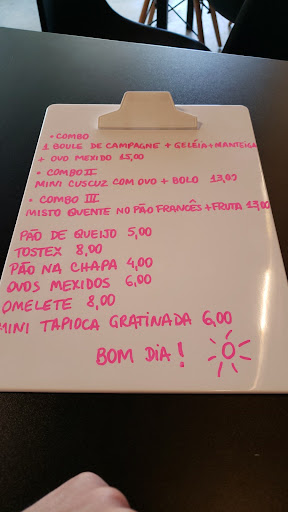 • COMBO
1 BOULE DE CAMPAGNE + GELÉIA + MANTEIGA
+ OVO MEXIDO 15,00
• COMBO II
MINI CUSCUZ COM OVO + BOLO 13,00
• COMBO III
MISTO QUENTE NO PÃO FRANCÊS + FRUTA 13,00
PÃO DE QUEIJO 5,00
TOSTEX 8,00
PÃO NA CHAPA 4,00
OVOS MEXIDOS 6,00
OMELETE 8,00
MINI TAPIOCA GRATINADA 6,00
BOM DIA!